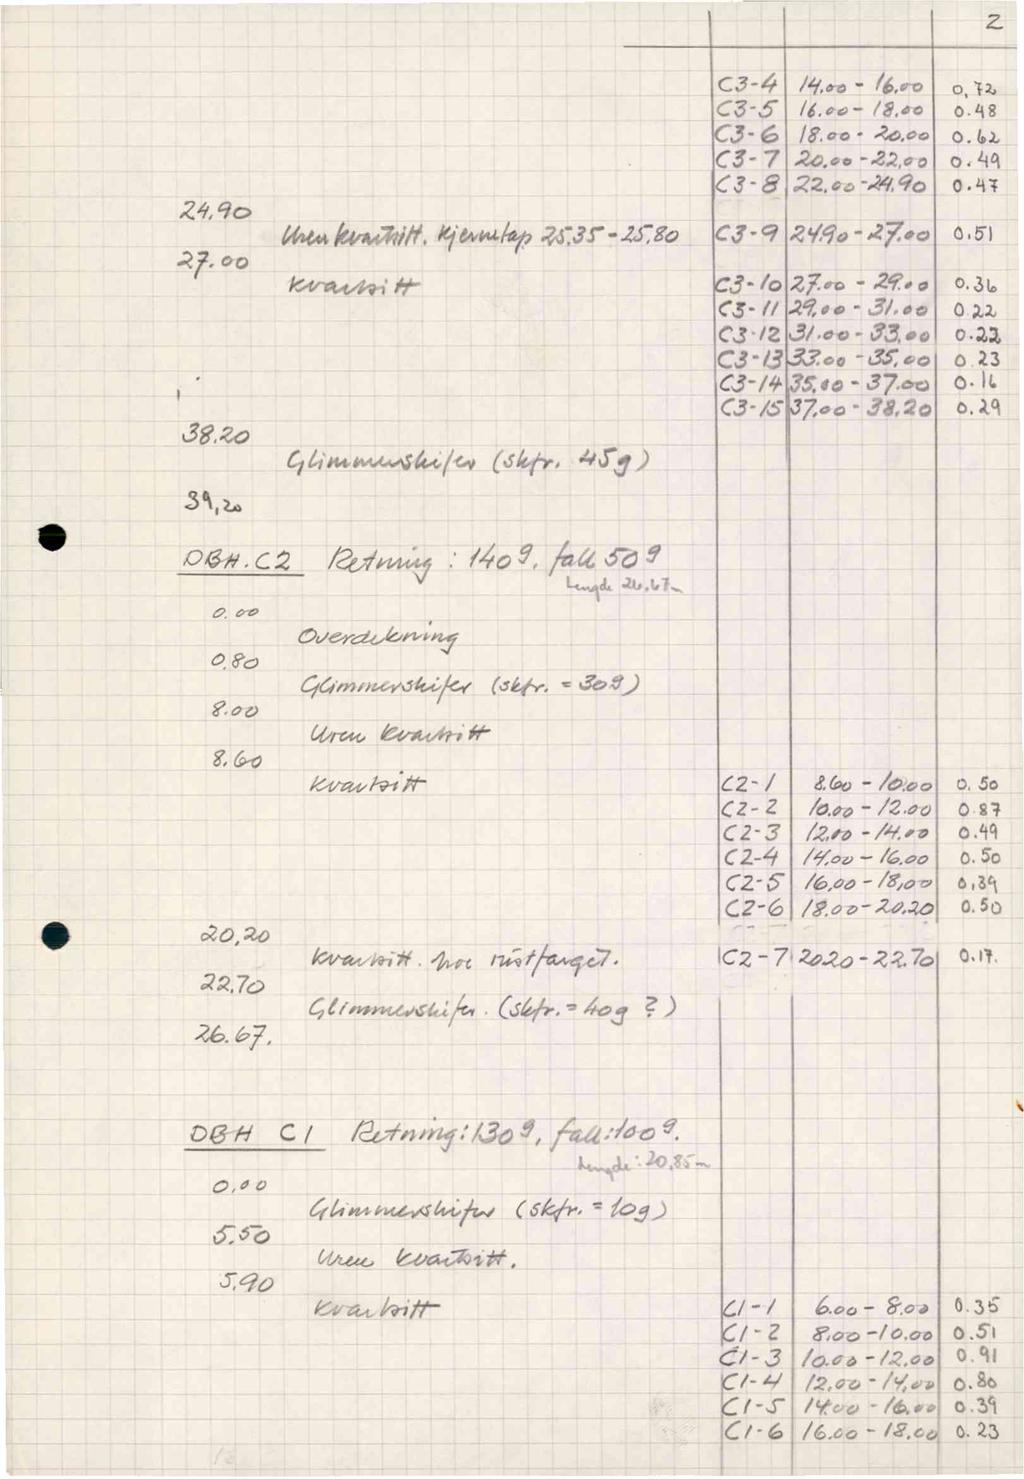 2
C3-4 14.00 - 16.00 0,72
C3-5 16.00 - 18.00 0.48
C3-6 18.00 - 20.00 0.62
C3-7 20.00 - 22,00 0.49
C3-8 22.00 - 24.90 0.47
24.90
Uren kvartsitt. Kjernetap 25.35 - 25.80 C3-9 24.90 - 27.00 0.51
27.00
Kvartsitt C3-10 27.00 - 29.00 0.36
C3-11 29.00 - 31.00 0.22
C3-12 31.00 - 33.00 0.22
C3-13 33.00 - 35.00 0.23
C3-14 35.00 - 37.00 0.16
C3-15 37.00 - 38.20 0.29
38.20
Glimmerskifer (skfr. 45g)
39,20
DBH. C2 Retning : 140g, fall 50g
Lengde 26,67m
0.00
Overdekning
0.80
Glimmerskifer (skfr. = 30g)
8.00
Uren kvartsitt
8.60
Kvartsitt C2-1 8.60 - 10.00 0.50
C2-2 10.00 - 12.00 0.87
C2-3 12.00 - 14.00 0.49
C2-4 14.00 - 16.00 0.50
C2-5 16.00 - 18,00 0,39
C2-6 18.00 - 20.20 0.50
20,20
Kvartsitt. noe rustfarget. C2-7 20.20 - 22.70 0.17.
22.70
Glimmerskifer. (skfr. = 40g ?)
26.67.
DBH C1 Retning: 130g, fall: 100g.
Lengde: 20,85m
0.00
Glimmerskifer (skfr. = 10g)
5.50
Uren kvartsitt.
5.90
Kvartsitt C1-1 6.00 - 8.00 0.35
C1-2 8.00 - 10.00 0.51
C1-3 10.00 - 12.00 0.91
C1-4 12.00 - 14.00 0.80
C1-5 14.00 - 16.00 0.39
C1-6 16.00 - 18.00 0.23